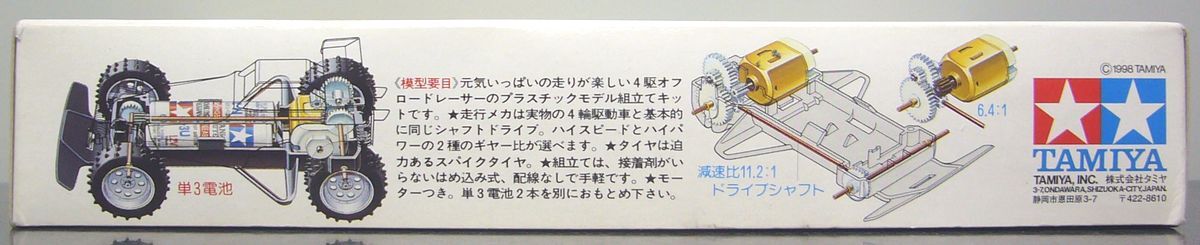 単3電池
《模型要目》元気いっぱいの走りが楽しい4駆オフ
ロードレーサーのプラスチックモデル組立てキッ
トです。★走行メカは実物の4輪駆動車と基本的
に同じシャフトドライブ。ハイスピードとハイパ
ワーの2種のギヤー比が選べます。★タイヤは迫
力あるスパイクタイヤ。★組立ては、接着剤がい
らないはめ込み式、配線なしで手軽です。★モー
ターつき。単3電池2本を別におもとめ下さい。
減速比11.2:1
ドライブシャフト
6.4:1
©1998 TAMIYA
TAMIYA
TAMIYA, INC. 株式会社タミヤ
3-7,ONDAWARA,SHIZUOKA-CITY,JAPAN.
静岡市恩田原3-7 〒422-8610